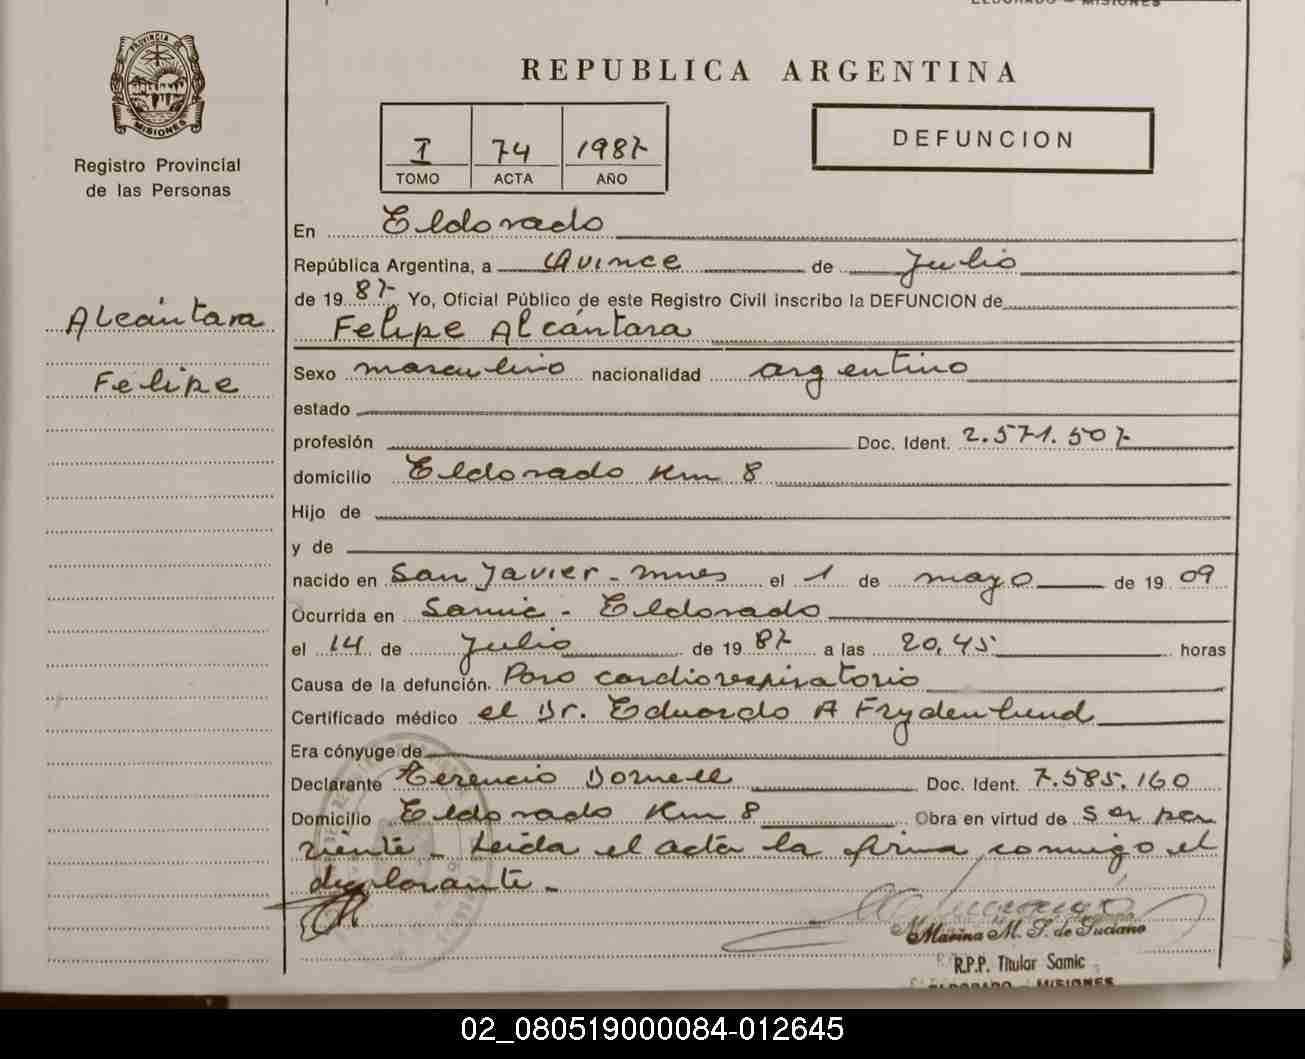 ELDORADO - MISIONES
PROVINCIA DE
MISIONES
Registro Provincial
de las Personas
REPUBLICA ARGENTINA
I 74 1987
TOMO ACTA AÑO
DEFUNCION
Alcántara
Felipe
En Eldorado
República Argentina, a Quince de Julio
de 19 87 Yo, Oficial Público de este Registro Civil inscribo la DEFUNCION de
Felipe Alcántara
Sexo masculino nacionalidad argentino
estado
profesión Doc. Ident. 2.571.507
domicilio Eldorado Km 8
Hijo de
y de
nacido en San Javier - Mnes el 1 de mayo de 19 09
Ocurrida en Samic - Eldorado
el 14 de Julio de 19 87 a las 20,45 horas
Causa de la defunción. Paro cardiorespiratorio
Certificado médico el Dr. Eduardo A Frydenlund
Era cónyuge de
Declarante Terencio Dornell Doc. Ident. 7.585.160
Domicilio Eldorado Km 8 Obra en virtud de ser pa
riente - Leida el acta la firma conmigo el
declarante -
Marina M. J. de Luciano
R.P.P. Titular Samic
ELDORADO - MISIONES
02_080519000084-012645